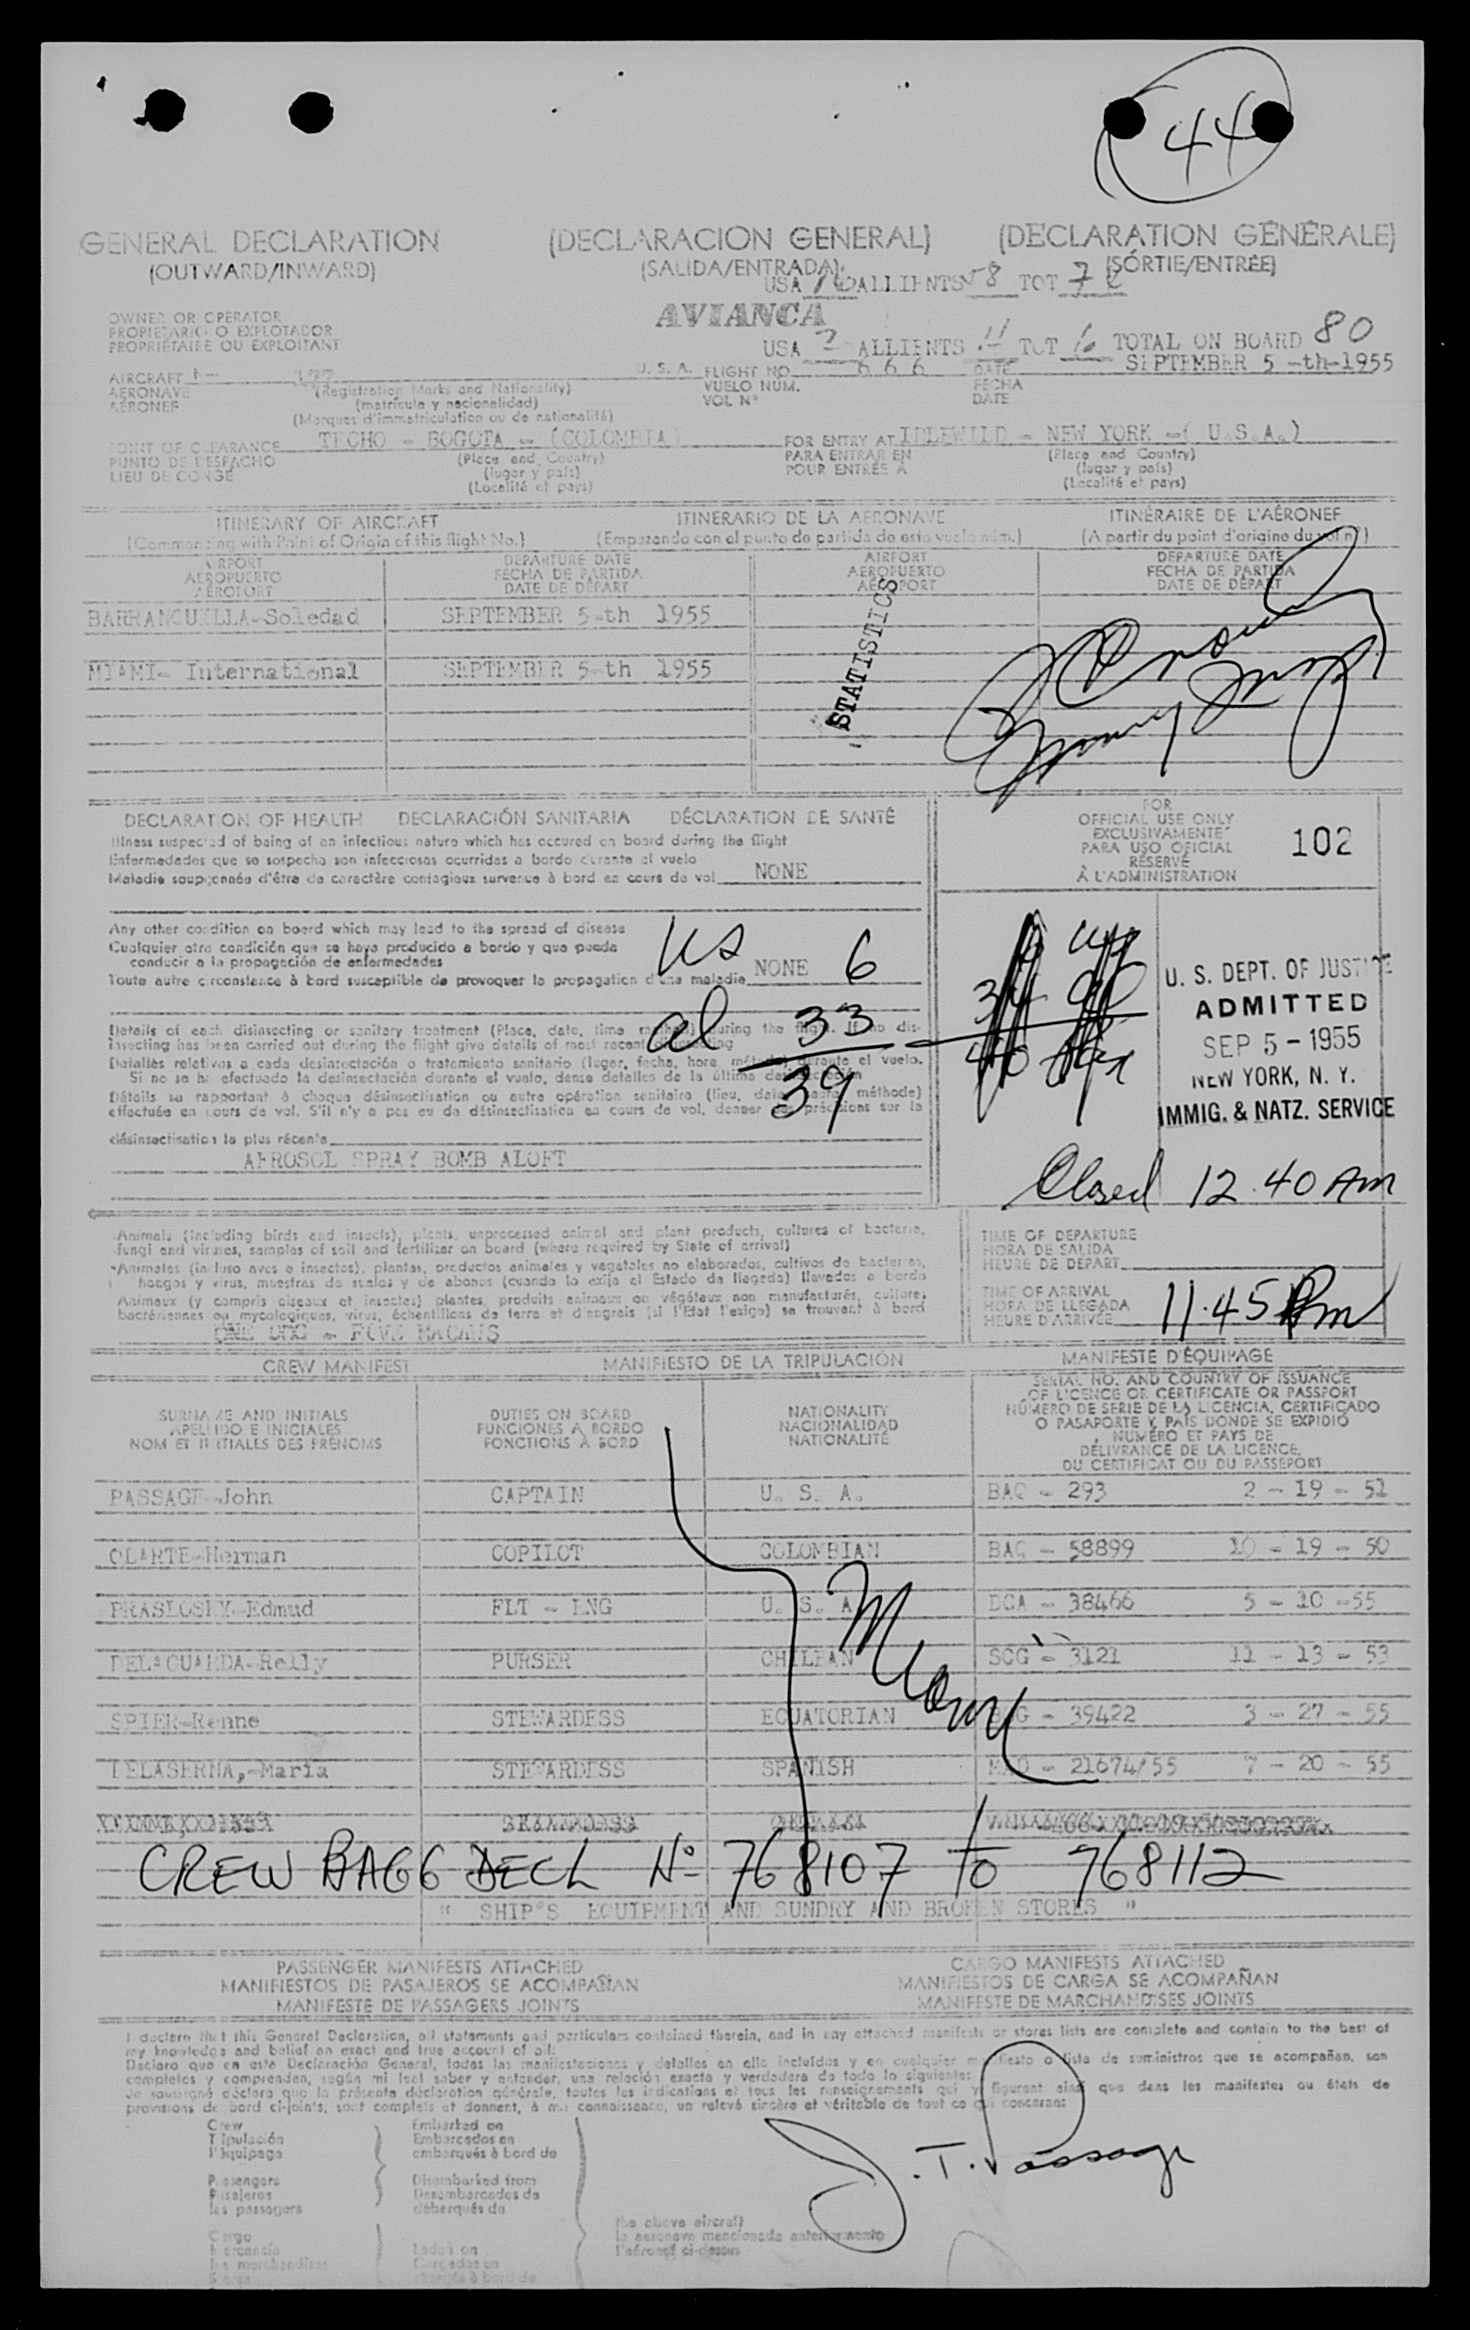 44
GENERAL DECLARATION (DECLARACION GENERAL) (DÉCLARATION GÉNÉRALE)
(OUTWARD/INWARD) (SALIDA/ENTRADA) (SÓRTIE/ENTRÉE)
USA ALLIENTS 58 TOT
OWNER OR OPERATOR
PROPIETARIO O EXPLOTADOR
PROPRIÉTAIRE OU EXPLOITANT
AVIANCA
USA ALLIENTS TOT 16 TOTAL ON BOARD 80
AIRCRAFT U. S. A. FLIGHT NO. 666 DATE SEPTEMBER 5-th-1955
AERONAVE (Registration Marks and Nationality) VUELO NUM. FECHA
AÉRONEF (matrícula y nacionalidad) VOL Nº DATE
(Marques d'immatriculation ou de nationalité)
POINT OF CLEARANCE TECHO - BOGOTA - (COLOMBIA) FOR ENTRY AT IDLEWILD - NEW YORK -( U.S.A.)
PUNTO DE DESPACHO (Place and Country) PARA ENTRAR EN (Place and Country)
LIEU DE CONGÉ (lugar y país) POUR ENTRÉE A (lugar y país)
(Localité et pays) (Localité et pays)
ITINERARY OF AIRCRAFT ITINERARIO DE LA AERONAVE ITINÉRAIRE DE L'AÉRONEF
(Commencing with Point of Origin of this flight No.) (Empezando con el punto de partida de este vuelo núm.) (A partir du point d'origine du vol nº)
AIRPORT DEPARTURE DATE AIRPORT DEPARTURE DATE
AEROPUERTO FECHA DE PARTIDA AEROPUERTO FECHA DE PARTIDA
AÉROPORT DATE DE DÉPART AÉROPORT DATE DE DÉPART
BARRANQUILLA-Soledad SEPTEMBER 5-th 1955
MIAMI- International SEPTEMBER 5-th 1955
STATISTICS
DECLARATION OF HEALTH DECLARACIÓN SANITARIA DÉCLARATION DE SANTÉ
Illness suspected of being of an infectious nature which has occured on board during the flight
Enfermedades que se sospecha son infecciosas ocurridas a bordo durante el vuelo
Maladie soupçonnée d'être de caractère contagieux survenue à bord en cours de vol NONE
FOR
OFFICIAL USE ONLY
EXCLUSIVAMENTE
PARA USO OFICIAL
RÉSERVÉ
À L'ADMINISTRATION
102
Any other condition on board which may lead to the spread of disease
Cualquier otra condición que se haya producido a bordo y que pueda
conducir a la propagación de enfermedades
Toute autre circonstance à bord susceptible de provoquer la propagation d'une maladie NONE
us 6
al 33
39
U. S. DEPT. OF JUSTICE
ADMITTED
SEP 5 - 1955
NEW YORK, N. Y.
IMMIG. & NATZ. SERVICE
Details of each disinsecting or sanitary treatment (Place, date, time method) during the flight. If no dis-
insecting has been carried out during the flight give details of most recent disinsecting
Detalles relativos a cada desinsectación o tratamiento sanitario (lugar, fecha, hora método) durante el vuelo.
Si no se ha efectuado la desinsectación durante el vuelo, dense detalles de la última desinsectación
Détails se rapportant à chaque désinsectisation ou autre opération sanitaire (lieu, date, heure, méthode)
effectuée en cours de vol. S'il n'y a pas eu de désinsectisation en cours de vol, donner des précisions sur la
désinsectisation la plus récente
AEROSOL SPRAY BOMB ALOFT
Closed 12.40 Am
Animals (including birds and insects), plants, unprocessed animal and plant products, cultures of bacteria,
fungi and viruses, samples of soil and fertilizer on board (where required by State of arrival)
Animales (incluso aves e insectos), plantas, productos animales y vegetales no elaborados, cultivos de bacterias,
hongos y virus, muestras de suelos y de abonos (cuando lo exija el Estado de llegada) llevados a bordo
Animaux (y compris oiseaux et insectes) plantes, produits animaux ou végétaux non manufacturés, cultures
bactériennes ou mycologiques, virus, échentillons de terre et d'engrais (si l'État l'exige) se trouvent à bord
ONE DOG -
TIME OF DEPARTURE
HORA DE SALIDA
HEURE DE DÉPART
TIME OF ARRIVAL
HORA DE LLEGADA
HEURE D'ARRIVÉE 11.45 Pm
CREW MANIFEST MANIFIESTO DE LA TRIPULACIÓN MANIFESTE D'ÉQUIPAGE
SURNAME AND INITIALS
APELLIDO E INICIALES
NOM ET INITIALES DES PRÉNOMS
DUTIES ON BOARD
FUNCIONES A BORDO
FONCTIONS À BORD
NATIONALITY
NACIONALIDAD
NATIONALITÉ
SERIAL NO. AND COUNTRY OF ISSUANCE
OF LICENCE OR CERTIFICATE OR PASSPORT
NÚMERO DE SERIE DE LA LICENCIA, CERTIFICADO
O PASAPORTE Y PAIS DONDE SE EXPIDIÓ
NUMÉRO ET PAYS DE
DÉLIVRANCE DE LA LICENCE,
DU CERTIFICAT OU DU PASSEPORT
PASSAGE-John CAPTAIN U. S. A. BAQ - 293 2 - 19 - 52
OLARTE-Herman COPILOT COLOMBIAN BAQ - 58899 10 - 19 - 50
PRASLOSKY-Edmud FLT - ENG U. S. A. DCA - 38466 5 - 10 -55
DELAGUARDA-Relly PURSER CHILEAN SCG - 3121 11 - 13 - 53
SPIER-Renne STEWARDESS ECUATORIAN 39422 3 - 27 - 55
DELASERNA,-Maria STEWARDESS SPANISH MAD - 21674/55 7 - 20 - 55
Miami
CREW BAGG DECL Nº 768107 to 768112
" SHIP'S EQUIPMENT AND SUNDRY AND BROKEN STORES "
PASSENGER MANIFESTS ATTACHED CARGO MANIFESTS ATTACHED
MANIFIESTOS DE PASAJEROS SE ACOMPAÑAN MANIFIESTOS DE CARGA SE ACOMPAÑAN
MANIFESTE DE PASSAGERS JOINTS MANIFESTE DE MARCHANDISES JOINTS
I declare that this General Declaration, all statements and particulars contained therein, and in any attached manifests or stores lists are complete and contain to the best of
my knowledge and belief an exact and true account of all:
Declaro que en esta Declaración General, todas las manifestaciones y detalles en ella incluídos y en cualquier manifiesto o lista de suministros que se acompañan, son
completos y comprenden, según mi leal saber y entender, una relación exacta y verdadera de todo lo siguiente:
Je soussigné déclare que la présente déclaration générale, toutes les indications et tous les renseignements qui y figurent ainsi que dans les manifestes ou états de
provisions de bord ci-joints, sont complets et donnent, à ma connaissance, un relevé sincère et véritable de tout ce qui concerne:
Crew Embarked on
Tripulación Embarcados en
l'équipage embarqués à bord de
Passengers Disembarked from
Pasajeros Desembarcados de
les passagers débarqués de
J. T. Passage
the above aircraft
la aeronave mencionada anteriormente
l'aéronef ci-dessus
Cargo
Mercancía Loaded on
les marchandises Cargadas en
Stores chargés à bord de